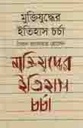 মুক্তিযুদ্ধের
ইতিহাস চর্চা
মুক্তিযুদ্ধের
ইতিহাস
চর্চা